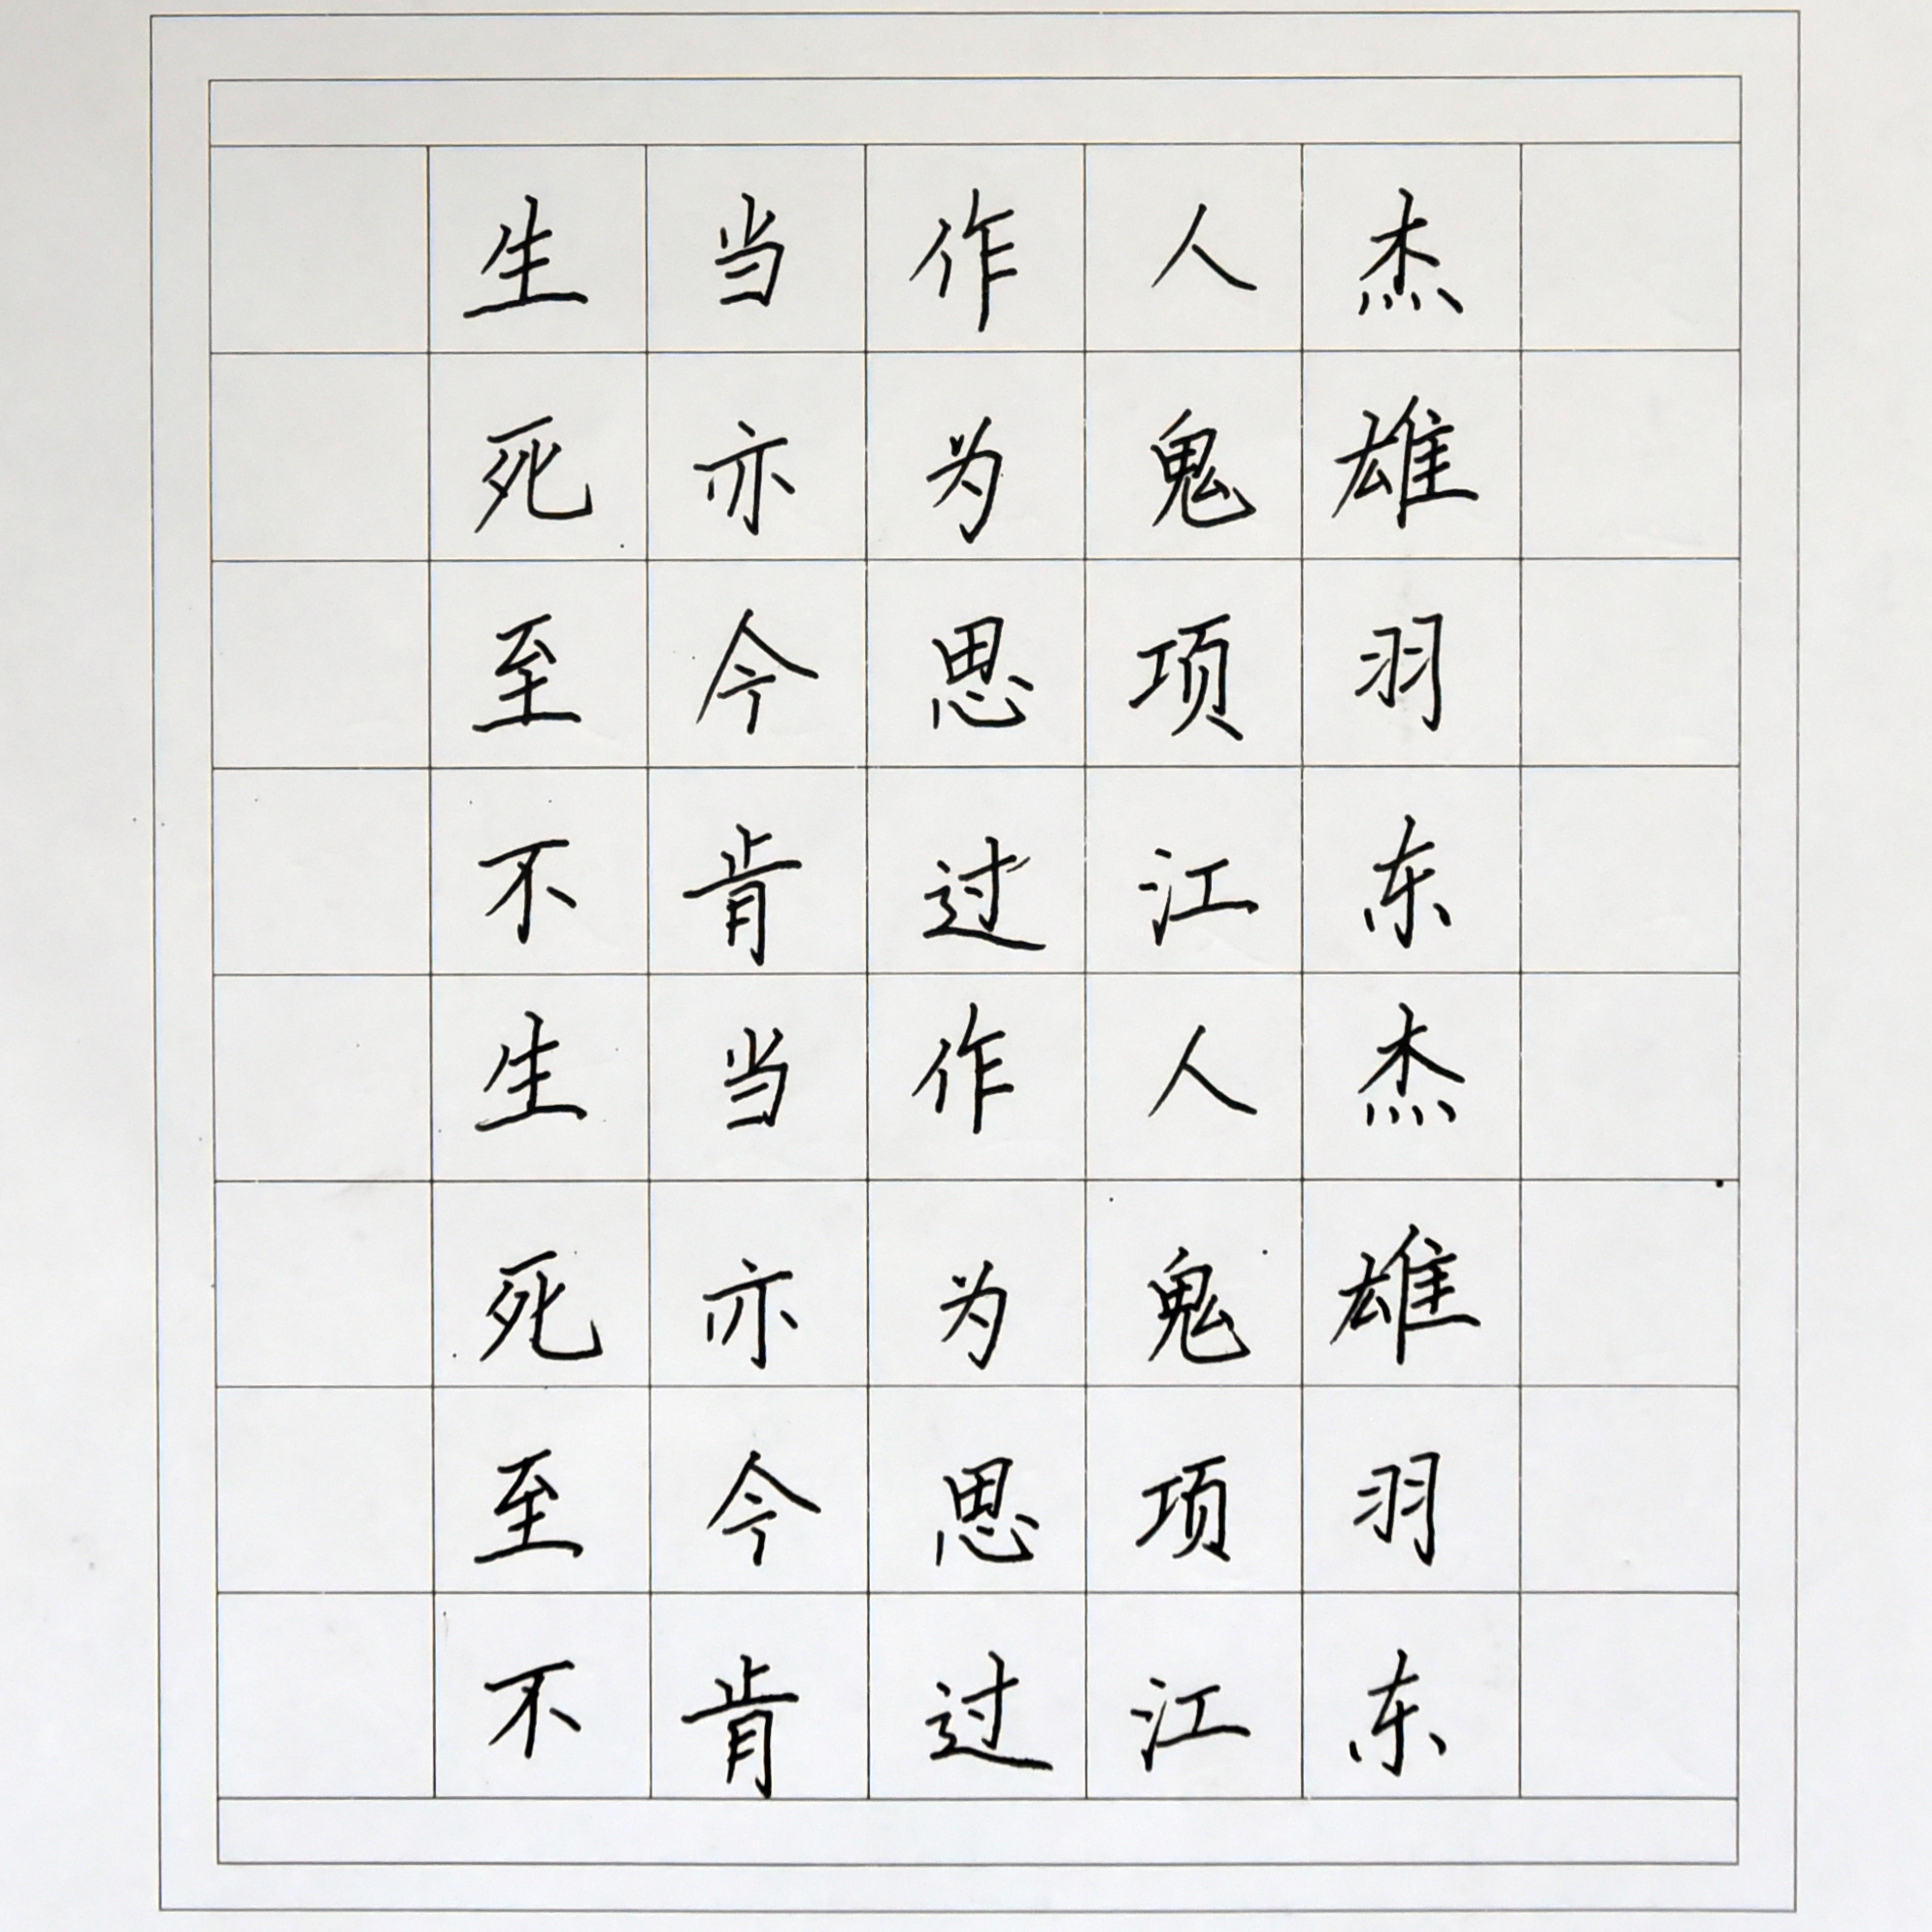 生当作人杰
死亦为鬼雄
至今思项羽
不肯过江东
生当作人杰
死亦为鬼雄
至今思项羽
不肯过江东